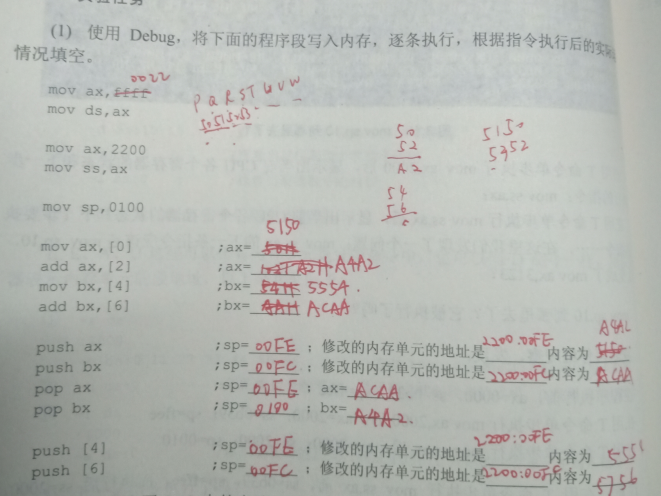 (1) 使用 Debug，将下面的程序段写入内存，逐条执行，根据指令执行后的实际
情况填空。
0022
mov ax,ffff
mov ds,ax
P Q R S T U V W
50 51 52 53
mov ax,2200
mov ss,ax
50
52
A2
5150
5352
54
56
mov sp,0100
5150
mov ax,[0] ;ax=
add ax,[2] ;ax= A4A2
mov bx,[4] ;bx= 5554.
add bx,[6] ;bx= ACAA
push ax ;sp= 00FE ；修改的内存单元的地址是 2200:00FE 内容为 A4A2
push bx ;sp= 00FC ；修改的内存单元的地址是 2200:00FC 内容为 ACAA
pop ax ;sp= 00FE ；ax= ACAA.
pop bx ;sp= 0100 ；bx= A4A2.
push [4] ;sp= 00FE ；修改的内存单元的地址是 2200:00FE 内容为
push [6] ;sp= 00FC ；修改的内存单元的地址是 内容为 5756